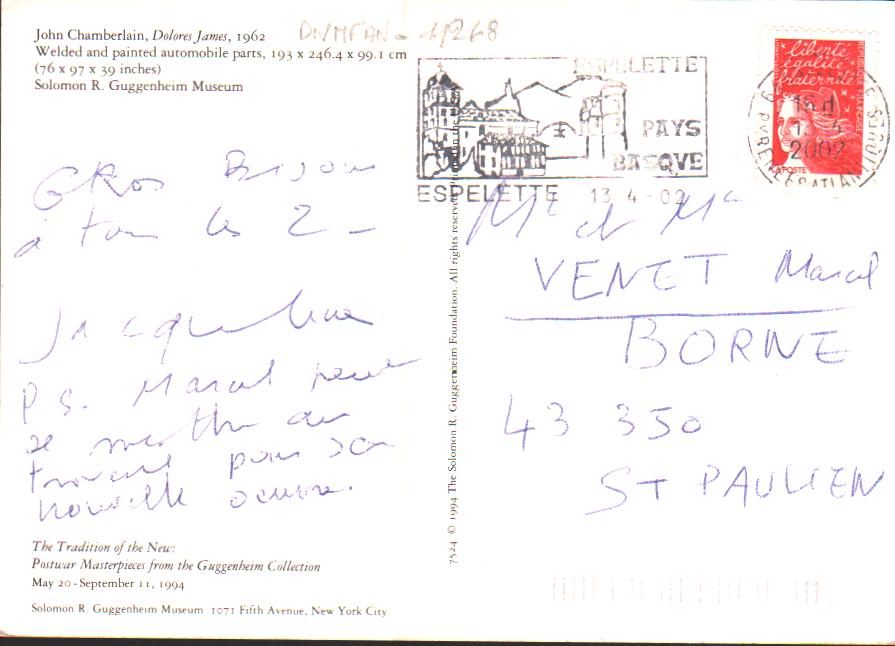 John Chamberlain, Dolores James, 1962
Welded and painted automobile parts, 193 x 246.4 x 99.1 cm
(76 x 97 x 39 inches)
Solomon R. Guggenheim Museum
Gros Bisous
à tous les 2 -
Jacqueline
P.S. Marcel peut
se mettre au
travail pour sa
nouvelle oeuvre.
The Tradition of the New:
Postwar Masterpieces from the Guggenheim Collection
May 20-September 11, 1994
Solomon R. Guggenheim Museum 1071 Fifth Avenue, New York City
7524 © 1994 The Solomon R. Guggenheim Foundation. All rights reserved.
ESPELETTE
PAYS
BASQVE
ESPELETTE 13 4 - 02
liberté
égalité
fraternité
LA POSTE
13 4
2002
Mr et Me
VENET Marcel
BORNE
43 350
ST PAULIEN